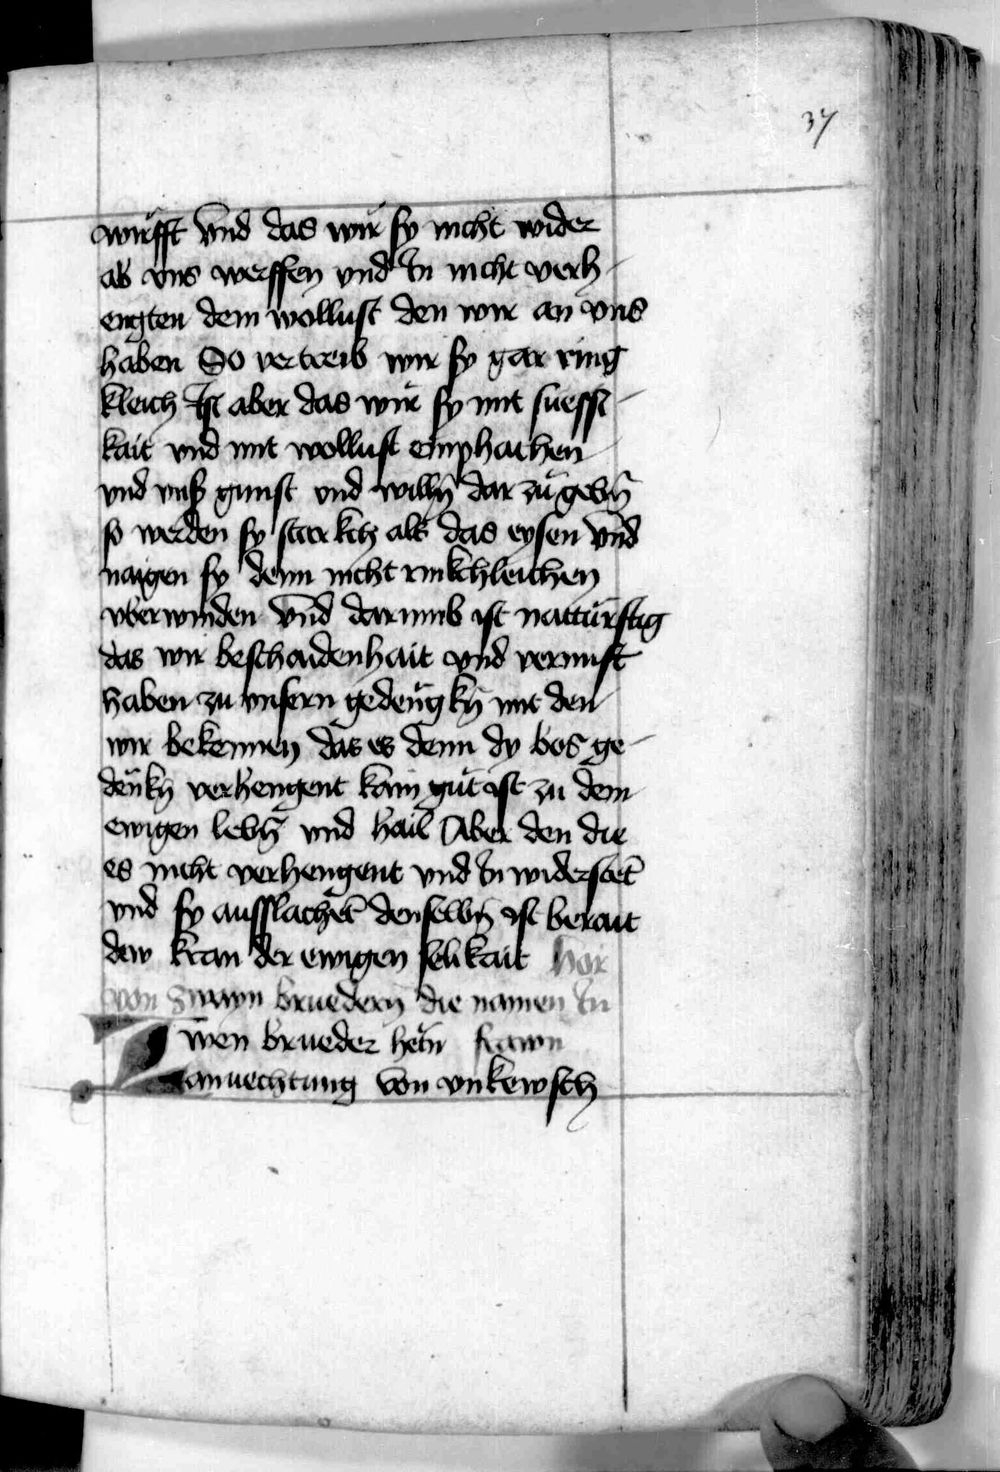 37
wirfft vnd das wir sy nicht wider
ab vns werffen vnd In nicht verh-
engten dem wollust den wir an vns
haben So vertreib wir sy gar ring
kleich Ist aber das wir sy mit suessi-
kait vnd mit wollust emphachen
vnd vnß gunst vnd willn̄ dar zů gebn̄
so werden sy starkch als das eysen vnd
mügen sy denn nicht rinkchleichen
vberwinden vnd darumb ist nattürftig
das wir beschaidenhait vnd vernuft
haben zu vnsern gedengkn̄ mit den
wir bekennen das es denn dy bos ge-
denkn̄ verhengent kain gůt ist zu dem
ewigen lebn̄ vnd hail Aber den die
es nicht verhengent vnd In widerstet̄
vnd sy ausslachet̄ denselbn̄ ist berait
dew kran der ewigen selikait hor
von zwayn bruedern̄ die namen In
Zwen brueder hetn̄ frawn
anuechtung von vnkewsch